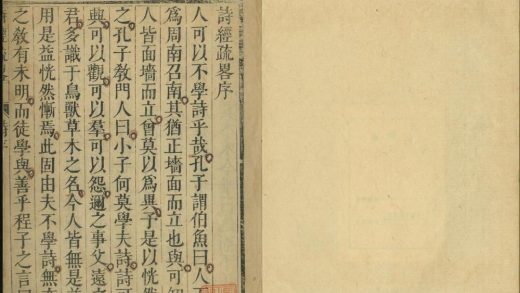 詩經疏畧序
人可以不學詩乎哉孔子謂伯魚曰人
爲周南召南其猶正墻面而立也與可知
人皆面墻而立曾莫以爲異予是以恍然
之孔子敎門人曰小子何莫學夫詩詩可
興可以觀可以羣可以怨邇之事父遠之
君多識于鳥獸草木之名今人皆無是
用是益恍然慚焉此固由夫不學詩無
之敎有未明而徒學與善乎程子之言曰